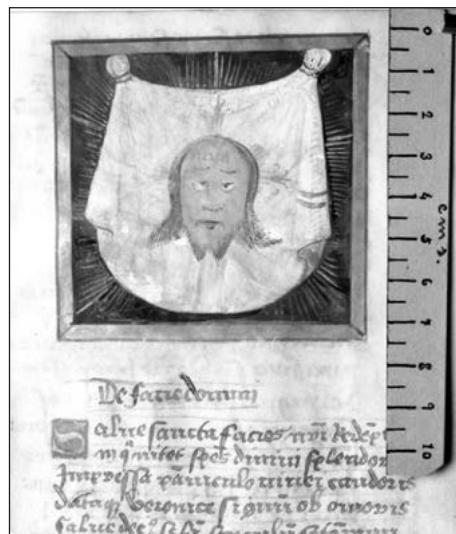 0
1
2
3
4
5
6
7
8
9
10
cms.
De facie domini
Salve sancta facies nr̄i Redēpt
ī q̄ nitet spēs divini splendor
Impressa pāniculo nivei candoris
Dataq; veronice signū ob amoris
Salve